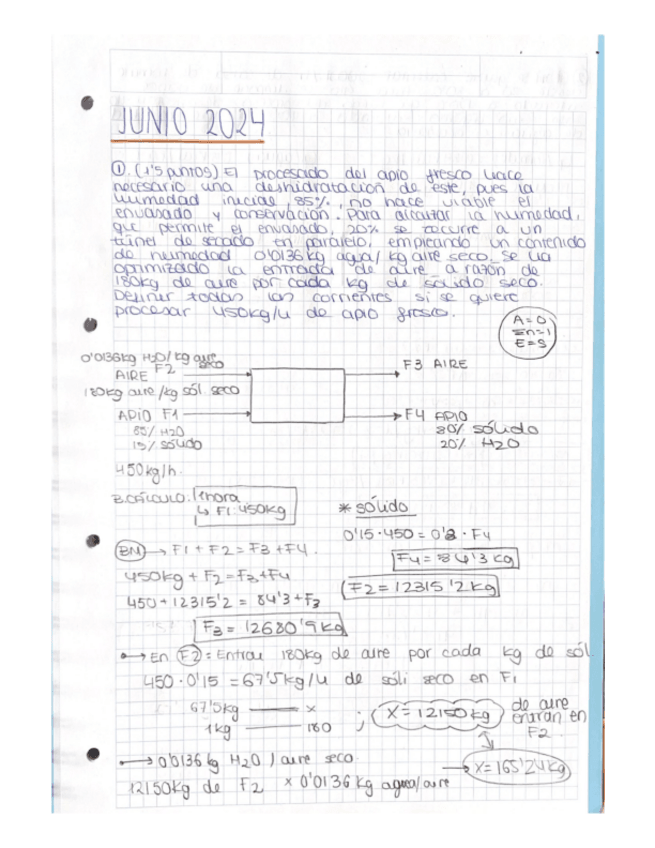 JUNIO 2024
①. (1'5 puntos) El procesado del apio fresco hace
necesario una deshidratación de este, pues la
humedad inicial, 85%, no hace viable el
envasado y conservación. Para alcanzar la humedad,
que permite el envasado, 20% se recurre a un
túnel de secado en paralelo, empleando un contenido
de humedad 0'0136 kg agua/kg aire seco. Se ha
optimizado la entrada de aire a razón de
180kg de aire por cada kg de sólido seco.
Definir todas las corrientes si se quiere
procesar 450kg/h de apio fresco.
A=0
En=1
E=S
0'0136kg H2O/kg aire seco
AIRE F2
180kg aire/kg sól. seco
F3 AIRE
APIO F1
85% H2O
15% sólido
F4 APIO
80% sólido
20% H2O
450kg/h.
B.CÁLCULO: 1hora
↳ F1: 450kg
* sólido
0'15·450 = 0'8·F4
F4 = 84'3 kg
BM → F1 + F2 = F3 + F4.
450kg + F2 = F3 + F4
F2 = 12315'2 kg
450 + 12315'2 = 84'3 + F3
F3 = 12680'9 kg
•→ En F2: Entran 180kg de aire por cada kg de sól.
450·0'15 = 67'5kg/h de sóli seco en F1
67'5kg —— x
1kg —— 180
; X = 12150 kg
de aire
entran en
F2.
•→ 0'0136 kg H2O / aire seco
→ X = 165'24 kg
12150kg de F2 × 0'0136 kg agua/aire